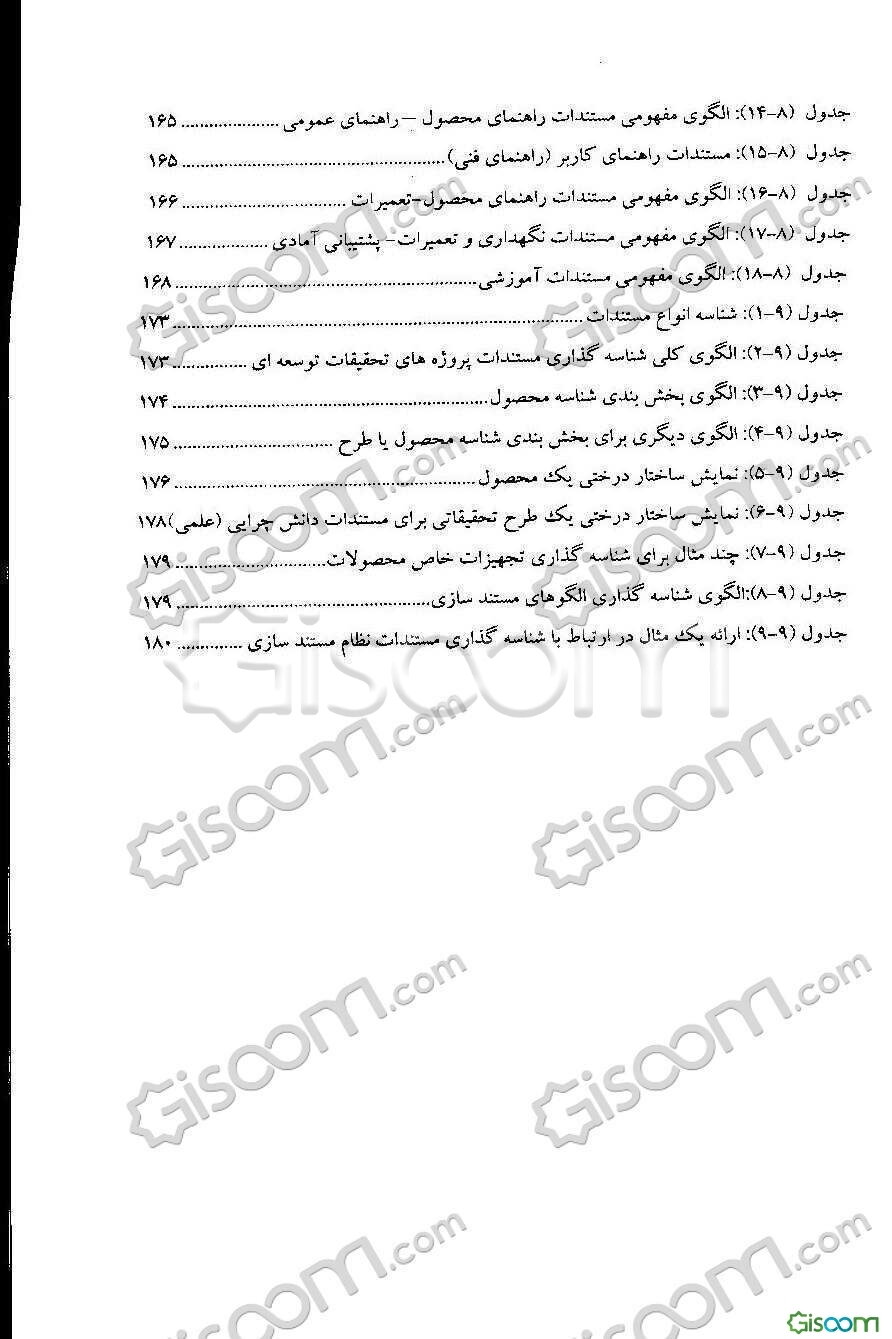 جدول (۸-۱۴): الگوی مفهومی مستندات راهنمای محصول –راهنمای عمومی ..................... ۱۶۵
جدول (۸-۱۵): مستندات راهنمای کاربر (راهنمای فنی)............................................... ۱۶۵
جدول (۸-۱۶): الگوی مفهومی مستندات راهنمای محصول-تعمیرات ............................. ۱۶۶
جدول (۸-۱۷): الگوی مفهومی مستندات نگهداری و تعمیرات- پشتیبانی آمادی ................... ۱۶۷
جدول (۸-۱۸): الگوی مفهومی مستندات آموزشی..................................................... ۱۶۸
جدول (۹-۱): شناسه انواع مستندات ........................................................................ ۱۷۳
جدول (۹-۲): الگوی کلی شناسه گذاری مستندات پروژه های تحقیقات توسعه ای ................ ۱۷۳
جدول (۹-۳): الگوی بخش بندی شناسه محصول........................................................ ۱۷۴
جدول (۹-۴): الگوی دیگری برای بخش بندی شناسه محصول یا طرح ............................ ۱۷۵
جدول (۹-۵): نمایش ساختار درختی یک محصول..................................................... ۱۷۶
جدول (۹-۶): نمایش ساختار درختی یک طرح تحقیقاتی برای مستندات دانش چرایی (علمی)۱۷۸
جدول (۹-۷): چند مثال برای شناسه گذاری تجهیزات خاص محصولات........................... ۱۷۹
جدول (۹-۸):الگوی شناسه گذاری الگوهای مستند سازی............................................. ۱۷۹
جدول (۹-۹): ارائه یک مثال در ارتباط با شناسه گذاری مستندات نظام مستند سازی .............. ۱۸۰
Giscom.com
Giscom.com
Giscom.com
Giscom.com
Giscoom
Giscom.com
Giscom.com
Giscom.com
Giscom.com
Giscom.com
Giscom.com
Gisoom